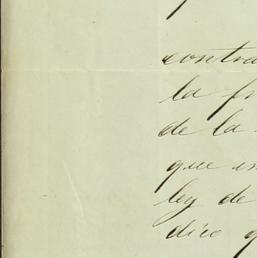 contra
la fr
de la
que in
ley de
dice q